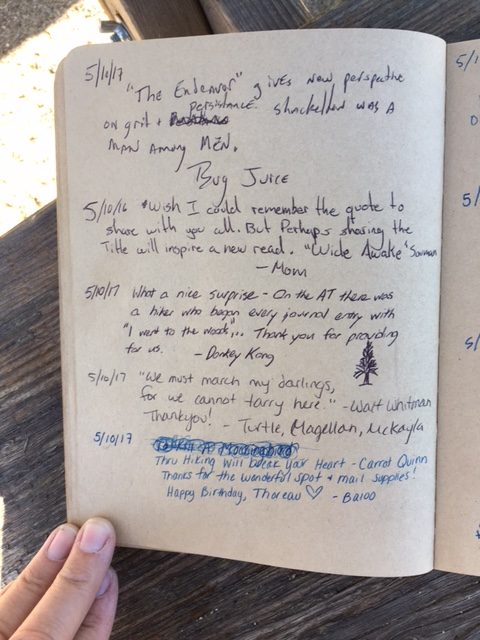 5/10/17
"The Endeavor" gives new perspective
persistance. shackelton was a
on grit +
man among MEN.
Bug Juice
5/10/16 *Wish I could remember the quote to
share with you all. But Perhaps sharing the
Title will inspire a new read. "Wide Awake"
- Mom
5/10/17 What a nice surprise - On the AT there was
a hiker who began every journal entry with
"I went to the woods"... Thank you for providing
for us. - Donkey Kong
5/10/17 "We must march my darlings,
for we cannot tarry here." - Walt Whitman
Thankyou! - Turtle, Magellan, McKayla
5/10/17 To Kill A Mockingbird
Thru Hiking Will Break Your Heart - Carrot Quinn
Thanks for the wonderful spot + mail supplies!
Happy Birthday, Thoreau ♡ - Baloo
5/1
5/
5/